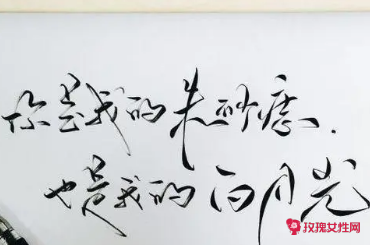 你是我的朱砂痣.
也是我的白月光
玫瑰女性网